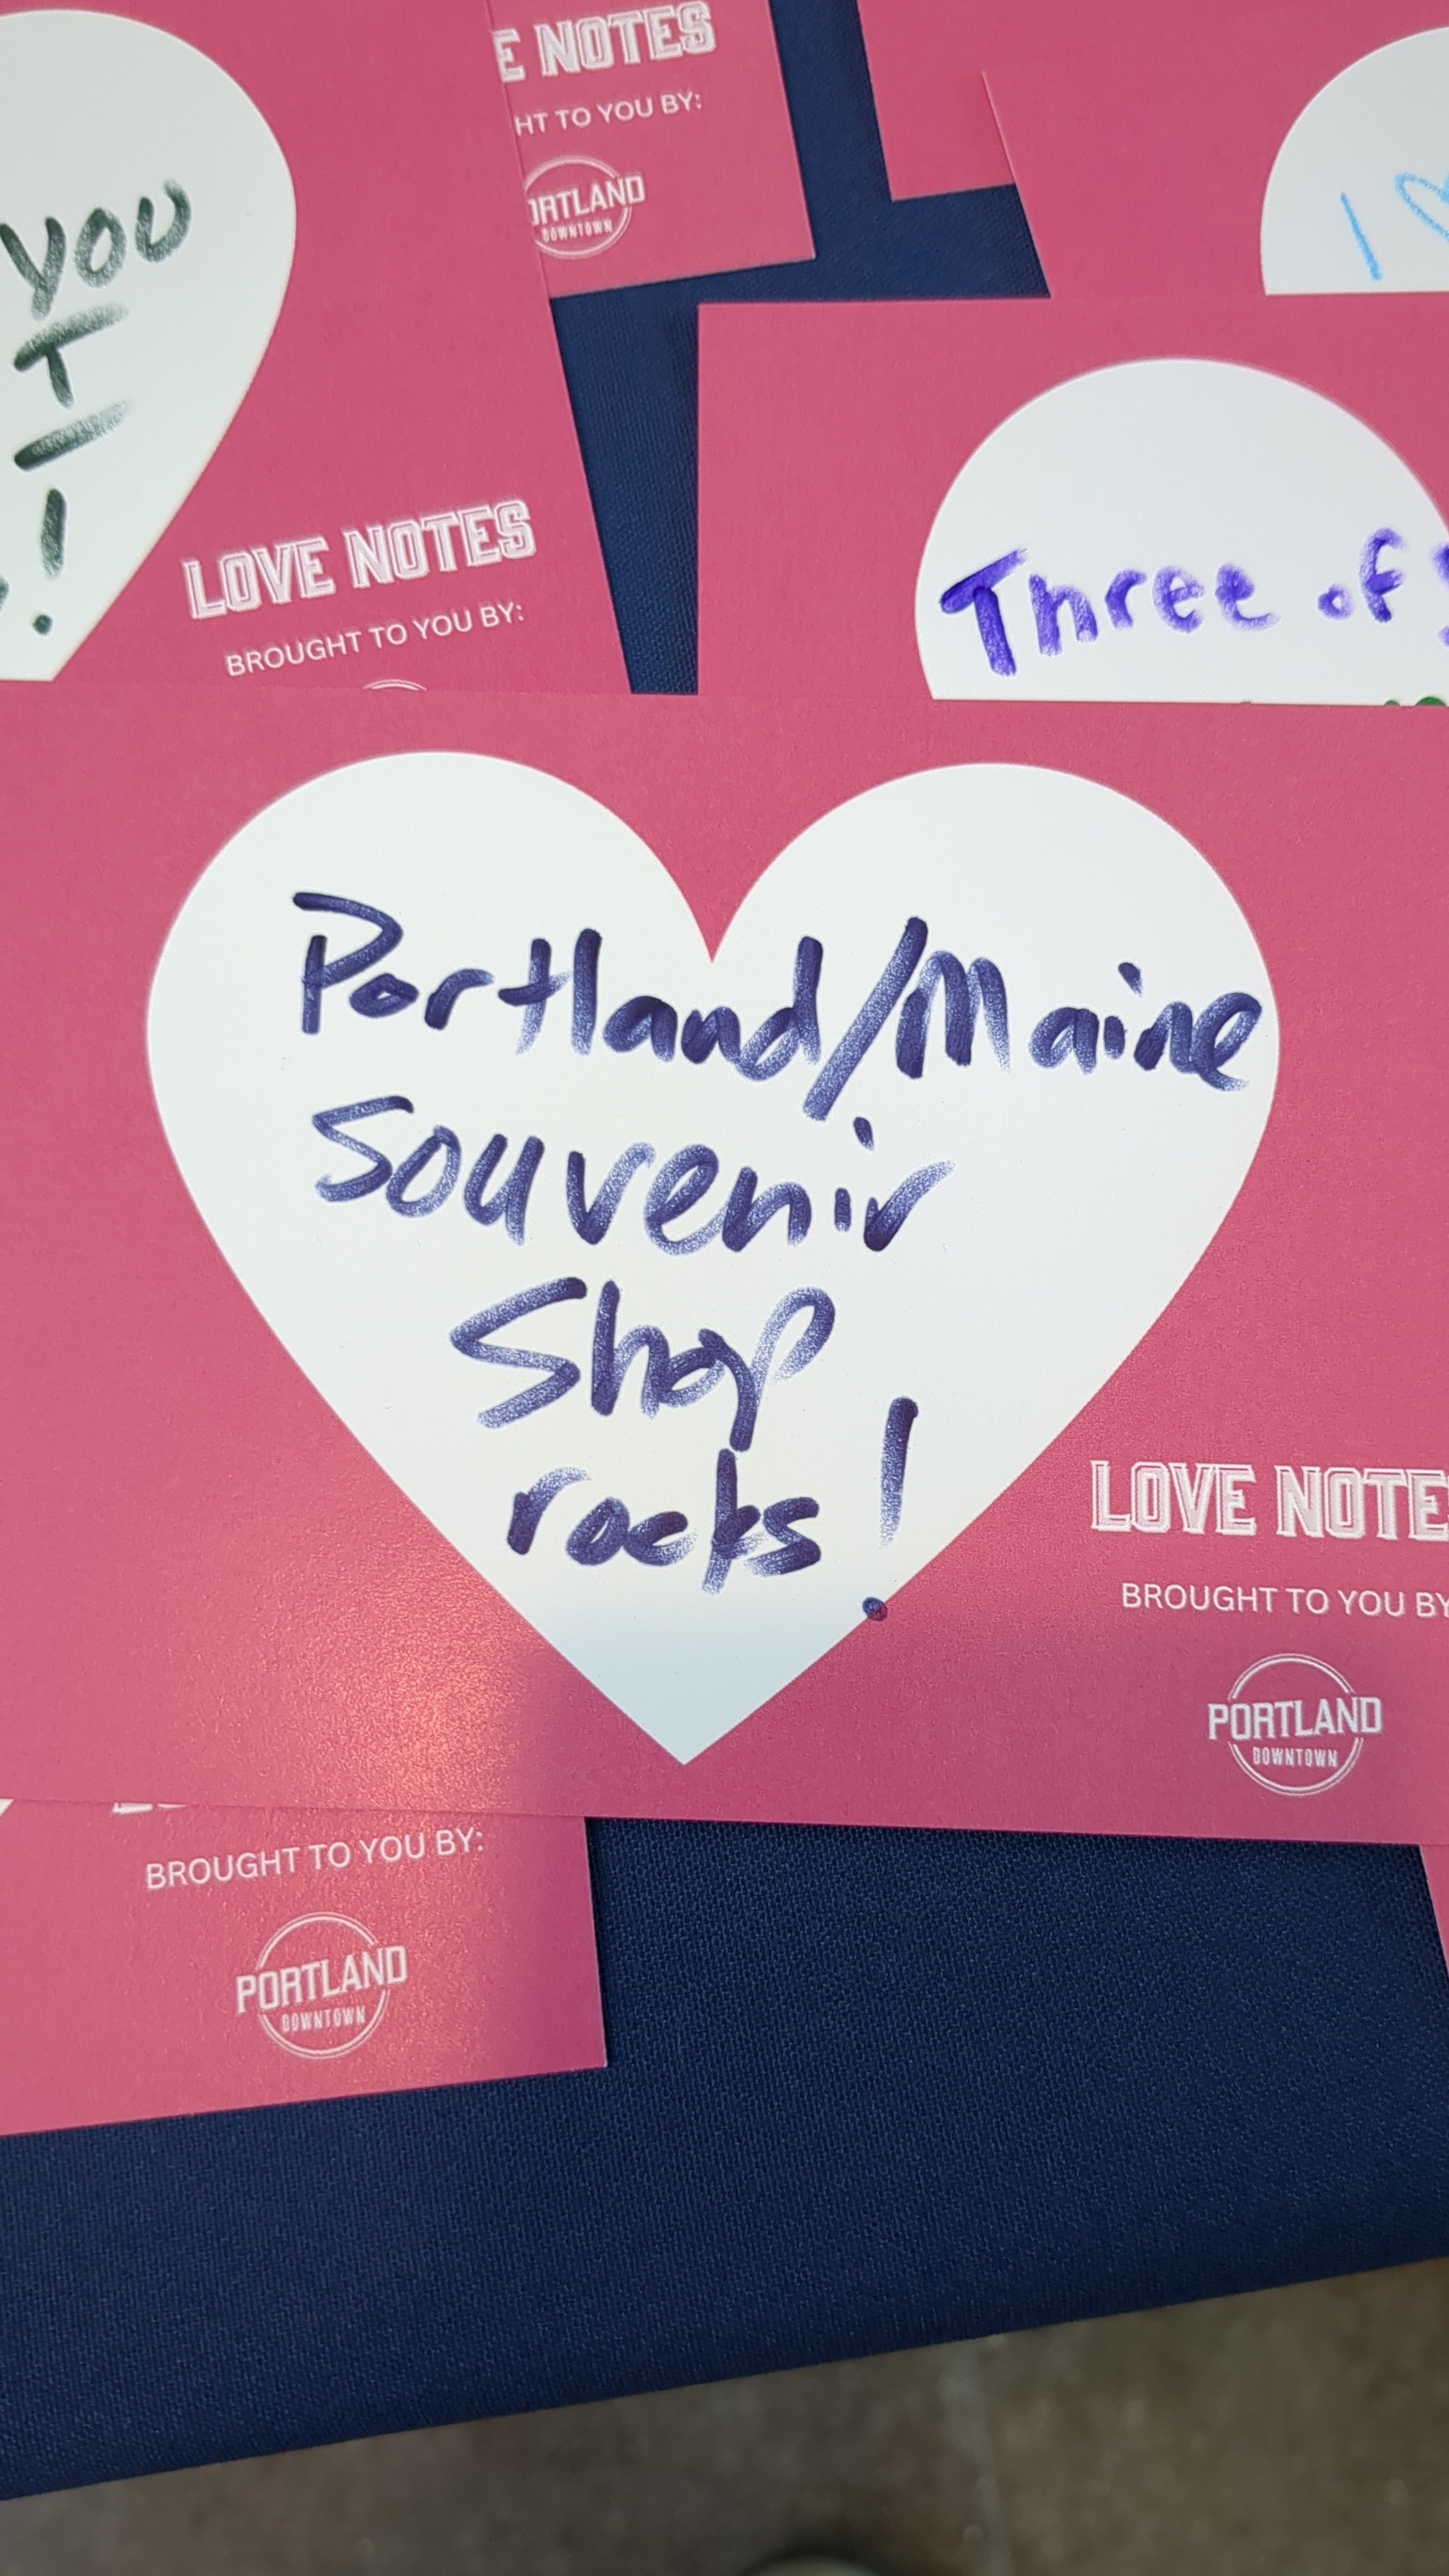 YOU
T
!
E NOTES
HT TO YOU BY:
ORTLAND
DOWNTOWN
I
LOVE NOTES
BROUGHT TO YOU BY:
Three of
Portland/Maine
Souvenir
Shop
rocks!
LOVE NOTE
BROUGHT TO YOU BY
PORTLAND
DOWNTOWN
BROUGHT TO YOU BY:
PORTLAND
DOWNTOWN